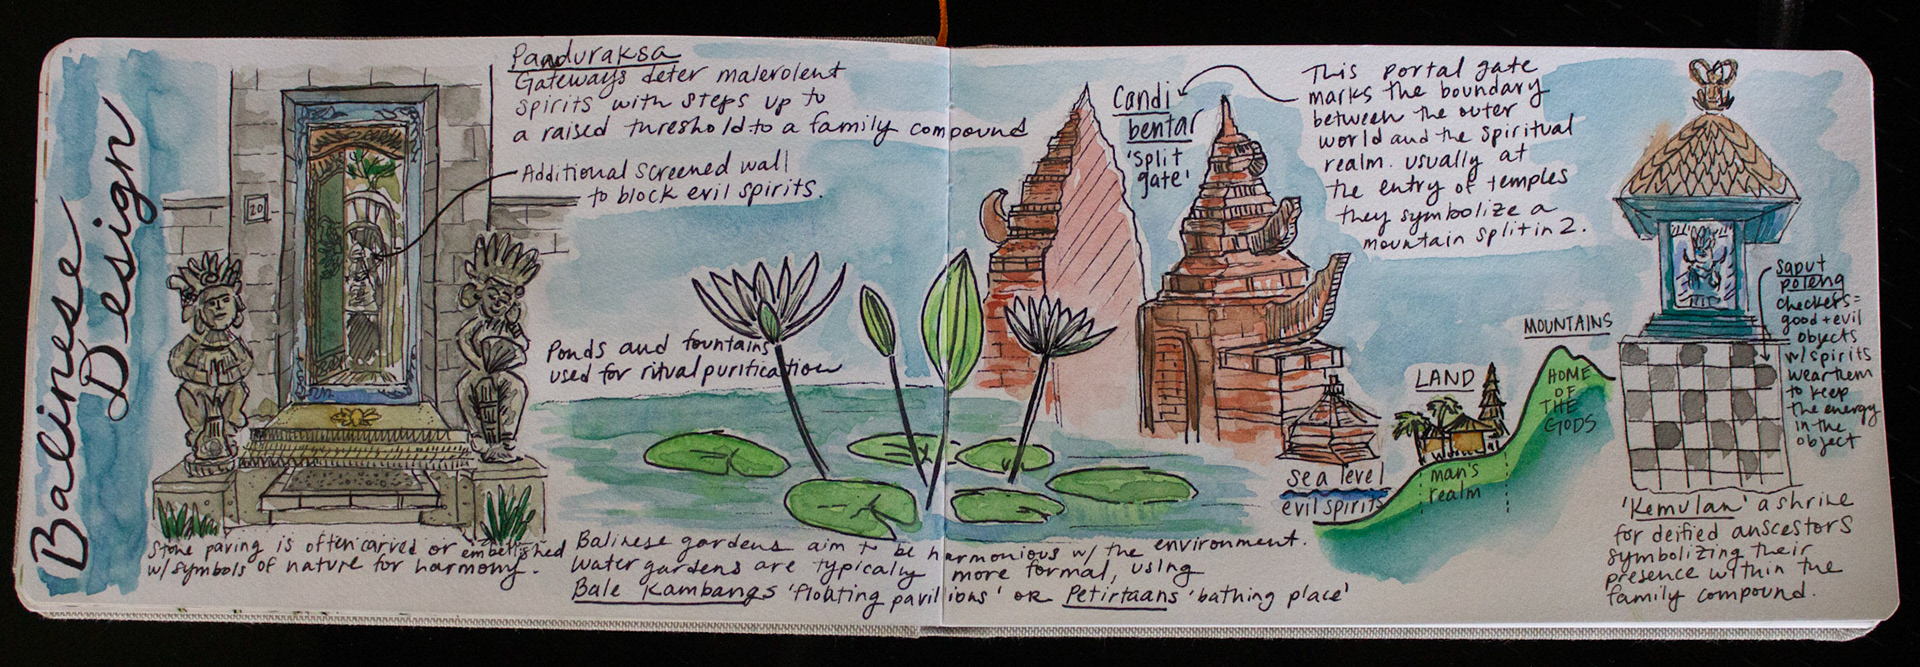 Balinese
Design
Paaduraksa
Gateways deter malevolent
spirits with steps up to
a raised threshold to a family compound
Additional screened wall
to block evil spirits.
20
Ponds and fountains
used for ritual purification
Stone paving is often carved or embellished
w/ symbols of nature for harmony.
Balinese gardens aim to be harmonious w/ the environment.
Water gardens are typically more formal, using
Bale Kambangs 'floating pavilions' OR Petirtaans 'bathing place'
Candi
bentar
'split
gate'
This portal gate
marks the boundary
between the outer
world and the spiritual
realm. usually at
the entry of temples
they symbolize a
mountain split in 2.
MOUNTAINS
HOME
OF
THE
GODS
LAND
man's
realm
sea level
evil spirits
saput
poleng
checkers=
good + evil
objects
w/ spirits
wear them
to keep
the energy
in the
object
'Kemulan' a shrine
for deified anscestors
symbolizing their
presence within the
family compound.